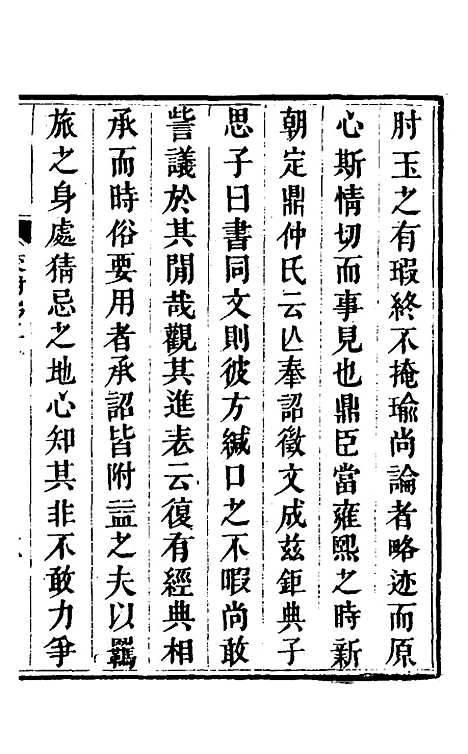 肘玉之有瑕終不掩瑜尚論者略迹而原
心斯情切而事見也鼎臣當雍熙之時新
朝定鼎仲氏云亾奉詔徵文成兹鉅典子
思子曰書同文則彼方緘口之不暇尚敢
訾議於其閒哉觀其進表云復有經典相
承而時俗要用者承詔皆附益之夫以羈
旅之身處猜忌之地心知其非不敢力爭